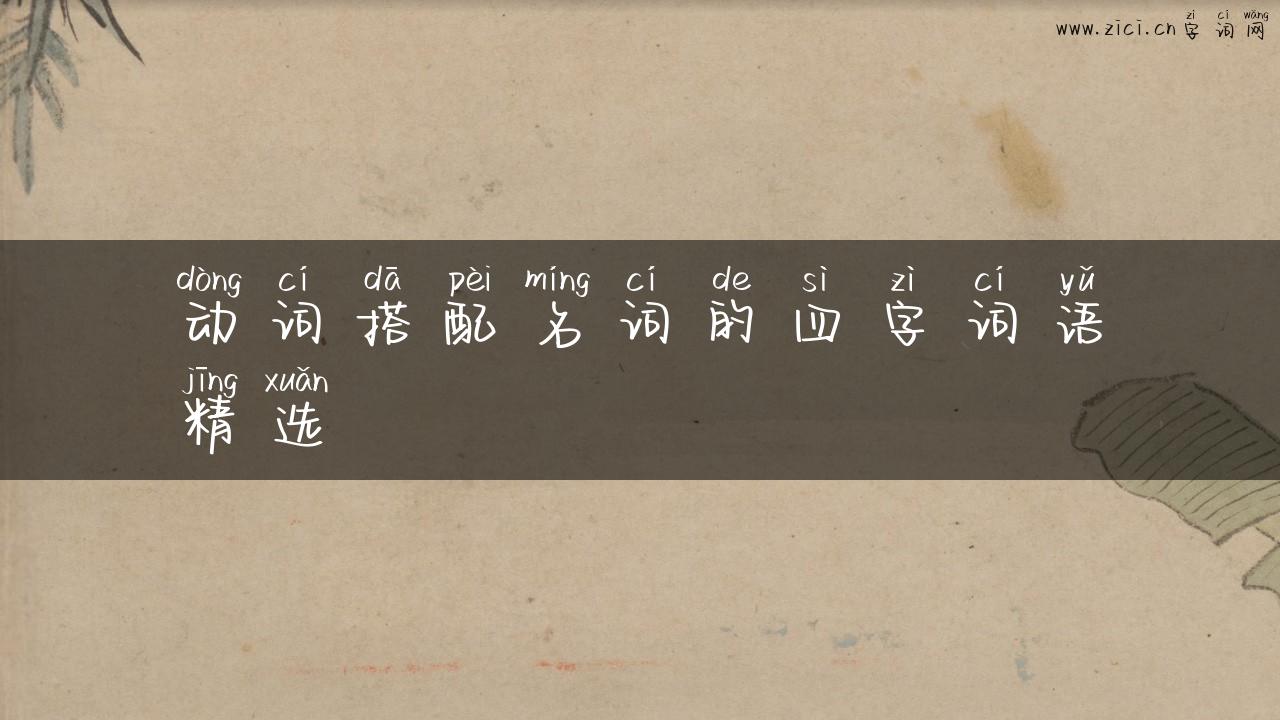 zì cí wǎng
www.zici.cn 字词网
dòng cí dā pèi míng cí de sì zì cí yǔ
动词搭配名词的四字词语
jīng xuǎn
精选